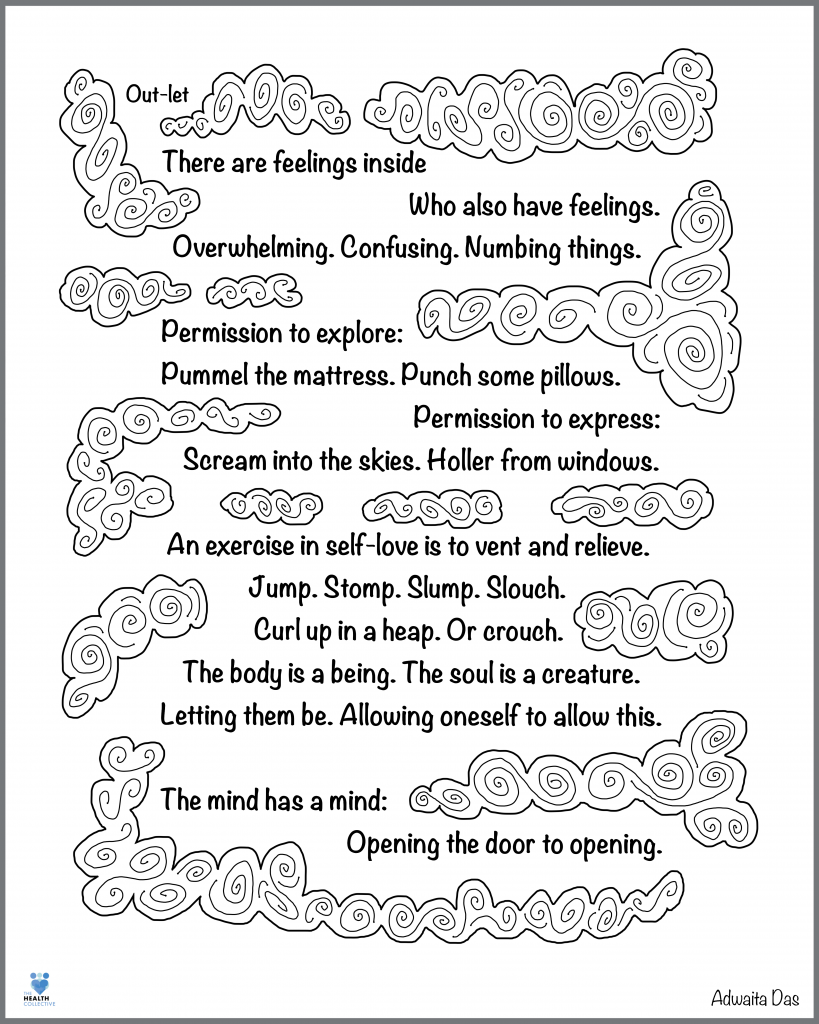 Out-let
There are feelings inside
Who also have feelings.
Overwhelming. Confusing. Numbing things.
Permission to explore:
Pummel the mattress. Punch some pillows.
Permission to express:
Scream into the skies. Holler from windows.
An exercise in self-love is to vent and relieve.
Jump. Stomp. Slump. Slouch.
Curl up in a heap. Or crouch.
The body is a being. The soul is a creature.
Letting them be. Allowing oneself to allow this.
The mind has a mind:
Opening the door to opening.
THE
HEALTH
COLLECTIVE
Adwaita Das